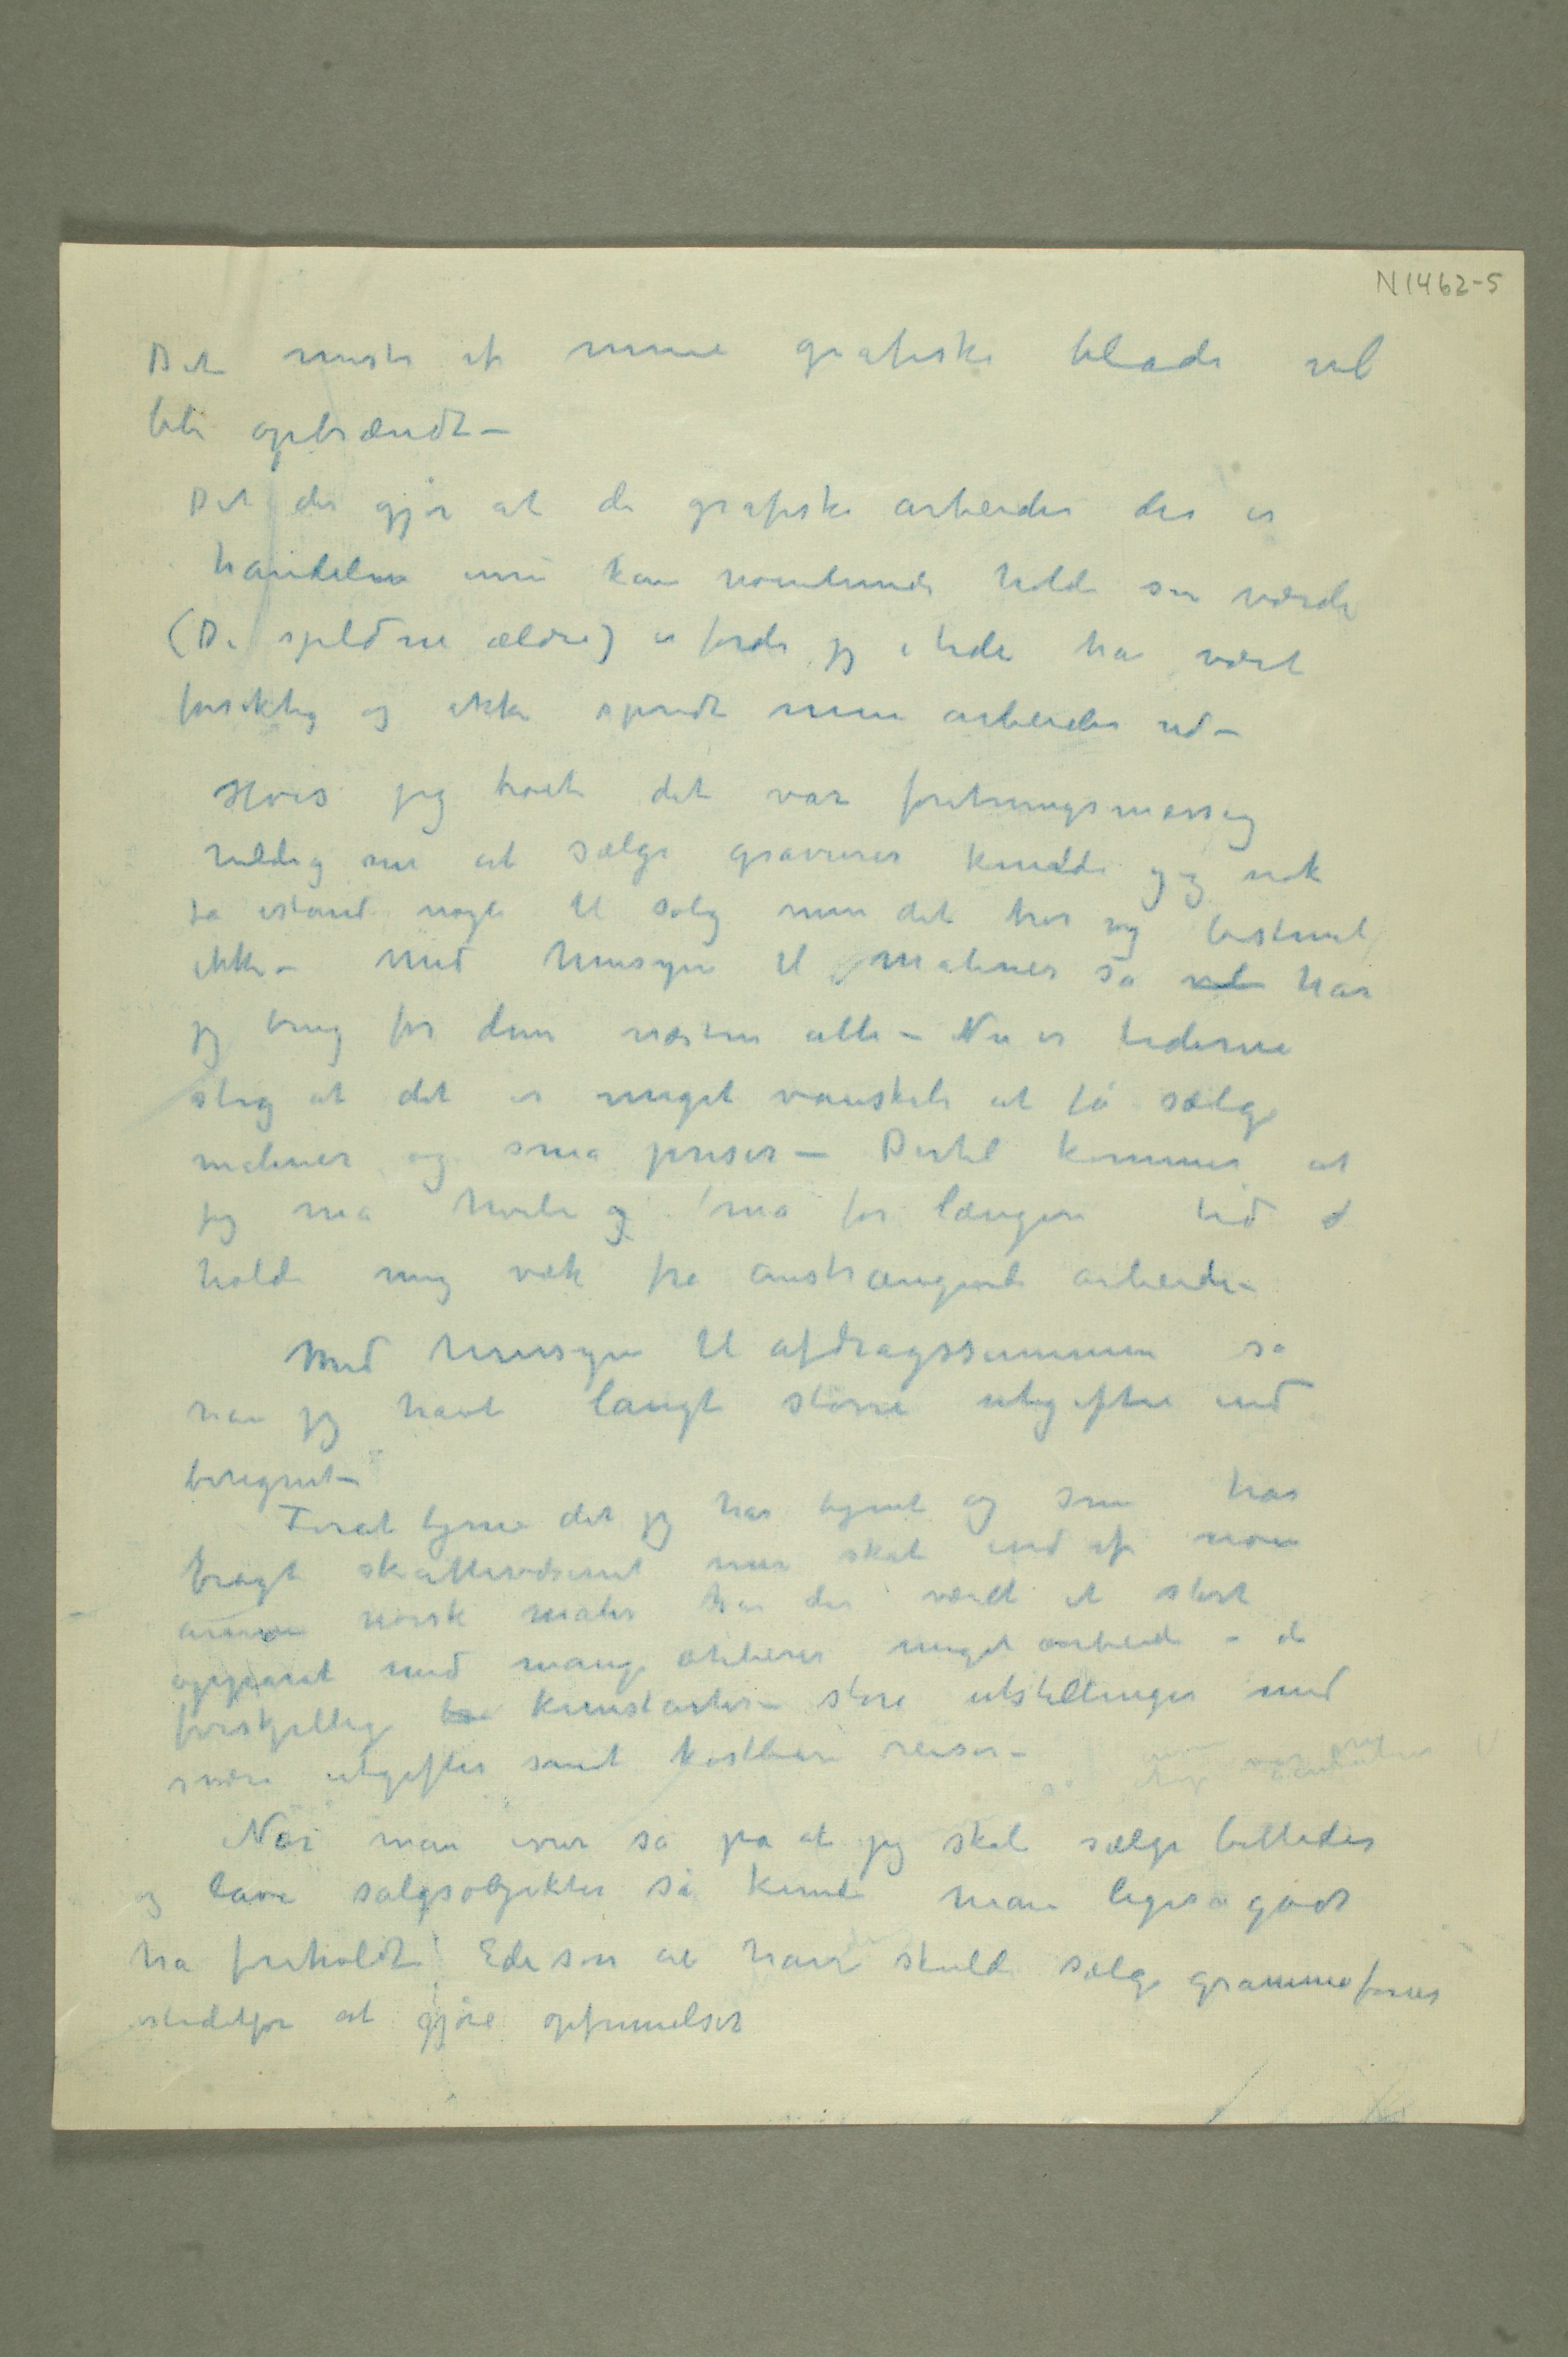 N1462-5
Det meste af mine grafiske blade vil
bli opbrændt –
Det der gjør at de grafiske arbeider der er
handelen nu kan nogenlunde holde sin værdi
(De sjeldne ældre) er fordi jeg i tide har vært
forsiktig og ikke spredt mine arbeider ud –
Hvis jeg troet det var foretningsmæssig
heldig nu at sælge gravurer kunde jeg nok
ta istand nogle til salg men det tror jeg bestemt
ikke – Med hensyn til malerier så har
jeg brug for dem næsten alle – Nu er tiderne
slig at det er meget vanskeli at få sælge
malerier og små priser – Dertil kommer at
jeg må hvile og må for længere tid
holde mig væk fra anstrængende arbeide –
Med hensyn til afdragssummen så
har jeg havt langt større utgifter end
beregnet –
Forat tjene det jeg har tjent og som har
bragt skattevæsenet mer skat end af noen
annen norsk maler har der været et stort
apparat med mange atelierer meget arbeide – de
forskjellige kunstarter – store utstillinger med
svære utgifter samt kostbare reiser –
Når man ivrer så på at jeg skal sælge billeder
og lave salgsobjekter så kunde man ligeså godt
ha foreholdt Edeson at han skulde sælge grammofoner
istedetfor at gjøre opfinnelser